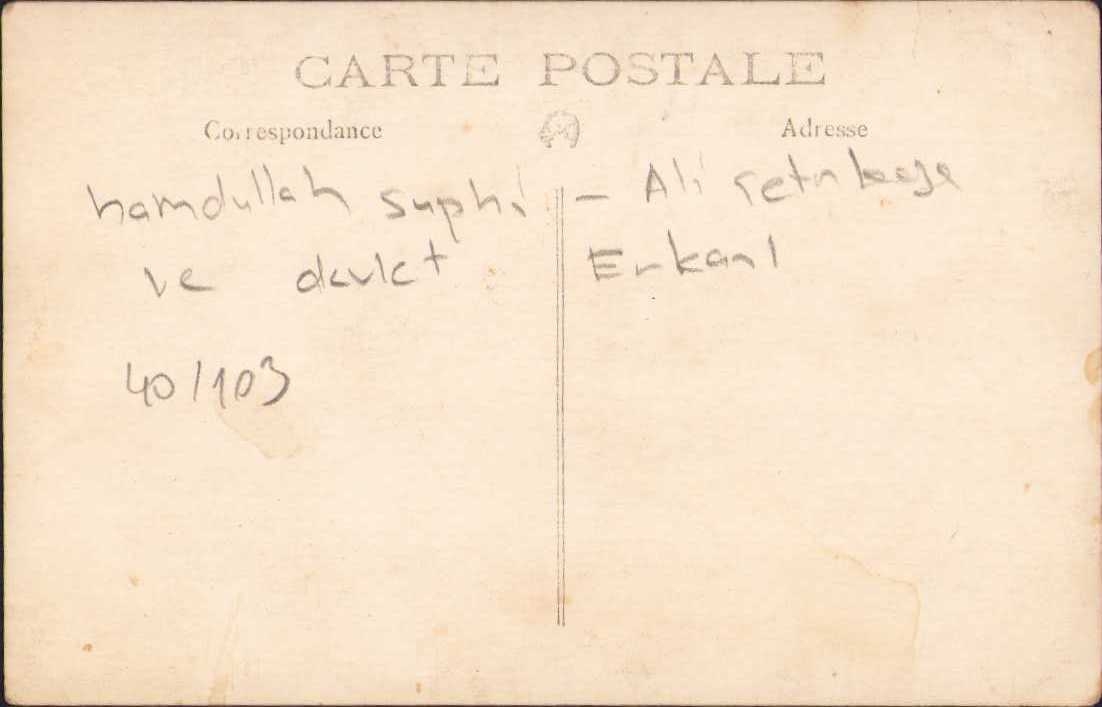 CARTE POSTALE
Correspondance
Adresse
hamdullah suphi - Ali çetinkaya
ve devlet Erkanı
40/103